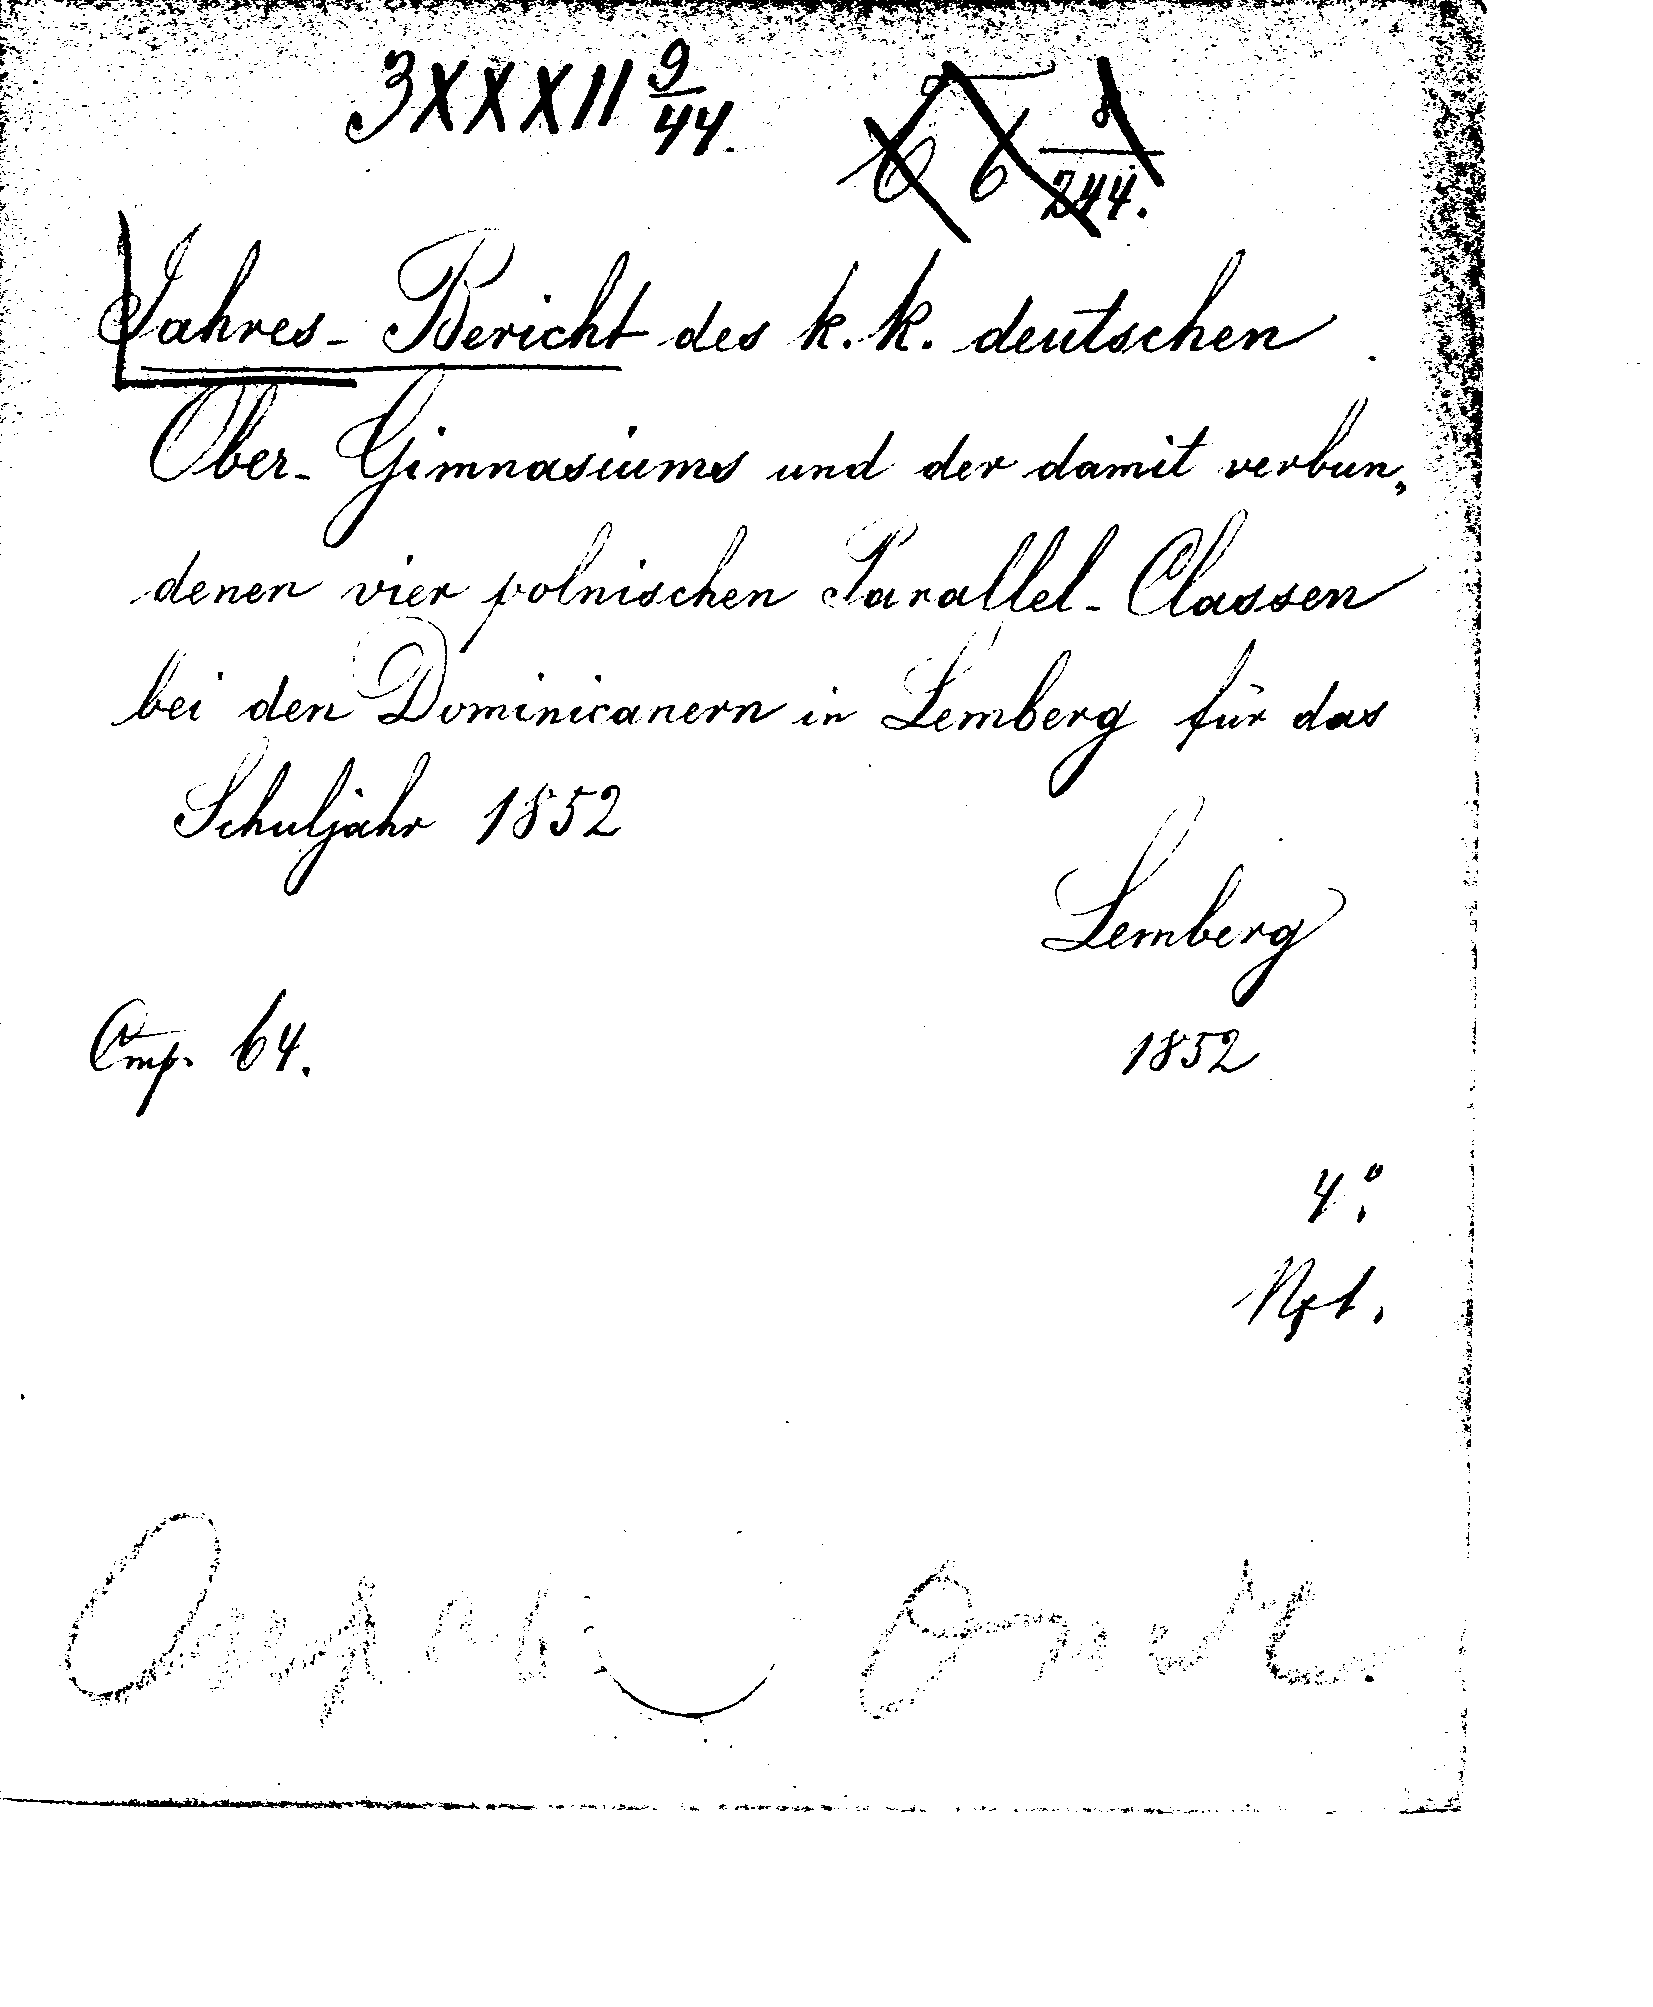 3XXXII 9/44.
8/244.
Jahres-Bericht des k. k. deutschen
Ober-Gimnasiums und der damit verbun„
denen vier polnischen Parallel-Classen
bei den Dominicanern in Lemberg für das
Schuljahr 1852
Lemberg
Cmp. 64.
1852
4°.